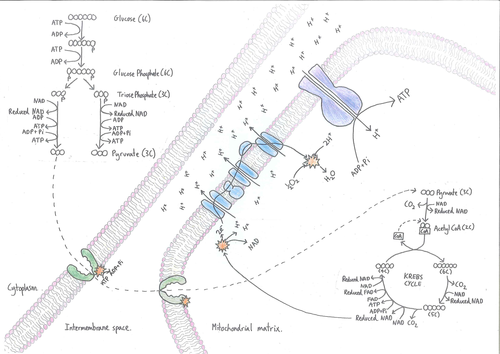 Glucose (6C)
ATP
ADP
ATP
ADP
P
Glucose Phosphate (6C)
P
P
Triose Phosphate (3C)
NAD
Reduced NAD
ADP
ATP
ADP+Pi
ATP
NAD
Reduced NAD
ADP
ATP
ADP+Pi
ATP
Pyruvate (3C)
H+
H+
H+
H+
H+
H+
ATP
H+
ADP+Pi
2H+
2O2
H2O
H+
NAD
ATP
ADP+Pi
Cytoplasm
Intermembrane space.
Mitochondrial matrix.
Pyruvate (3C)
CO2
NAD
Reduced NAD
Acetyl CoA (2C)
CoA
CoA
(4C)
(6C)
KREBS
CYCLE
CO2
NAD
Reduced NAD
(5C)
CO2
NAD
Reduced NAD
ADP+Pi
ATP
FAD
Reduced FAD
NAD
Reduced NAD